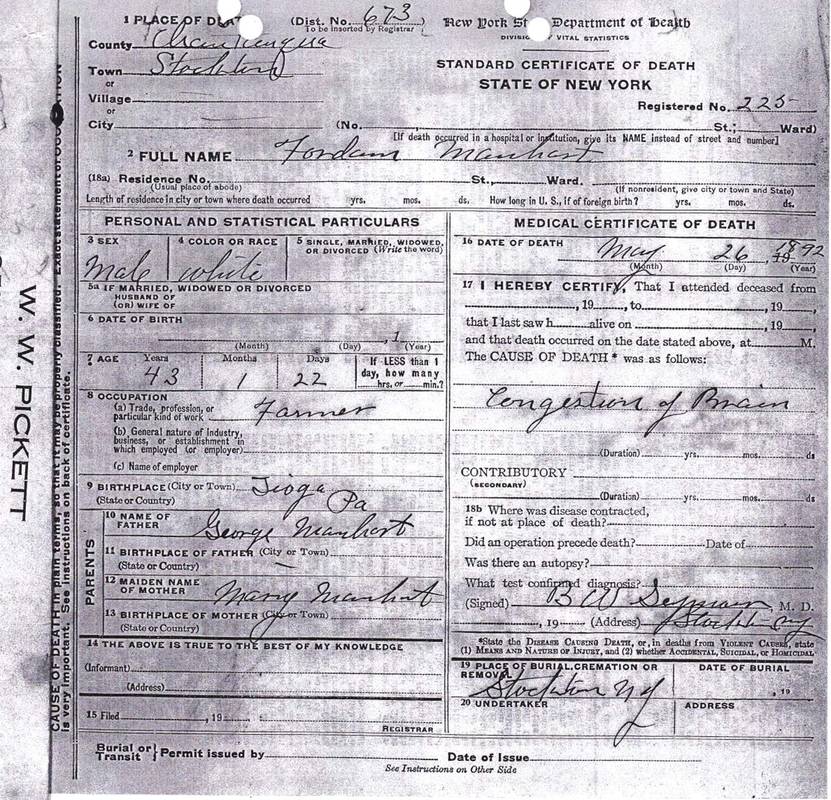 1 PLACE OF DEATH (Dist. No. 673 New York State Department of Health
To be inserted by Registrar)
DIVISION OF VITAL STATISTICS
County Chautauqua
STANDARD CERTIFICATE OF DEATH
Town Stockton
or
STATE OF NEW YORK
Village
or
Registered No. 225
City (No. , St.; Ward)
[If death occurred in a hospital or institution, give its NAME instead of street and number]
2 FULL NAME Fordam Manhart
(18a) Residence No. St., Ward.
(Usual place of abode) (If nonresident, give city or town and State)
Length of residence in city or town where death occurred yrs. mos. ds. How long in U. S., if of foreign birth? yrs. mos. ds.
PERSONAL AND STATISTICAL PARTICULARS
3 SEX 4 COLOR OR RACE 5 SINGLE, MARRIED, WIDOWED, OR DIVORCED (Write the word)
Male white
5a IF MARRIED, WIDOWED OR DIVORCED
HUSBAND OF
(OR) WIFE OF
6 DATE OF BIRTH
, 1
(Month) (Day) (Year)
7 AGE Years Months Days If LESS than 1
day, how many
43 1 22 hrs. or min.?
8 OCCUPATION
(a) Trade, profession, or
particular kind of work Farmer
(b) General nature of industry,
business, or establishment in
which employed (or employer)
(c) Name of employer
9 BIRTHPLACE (City or Town) Tioga Pa
(State or Country)
PARENTS
10 NAME OF
FATHER George Manhart
11 BIRTHPLACE OF FATHER (City or Town)
(State or Country)
12 MAIDEN NAME
OF MOTHER Mary Manhart
13 BIRTHPLACE OF MOTHER (City or Town)
(State or Country)
14 THE ABOVE IS TRUE TO THE BEST OF MY KNOWLEDGE
(Informant)
(Address)
15 Filed , 19
REGISTRAR
MEDICAL CERTIFICATE OF DEATH
16 DATE OF DEATH
May 26, 1892
(Month) (Day) (Year)
17 I HEREBY CERTIFY, That I attended deceased from
, 19 , to , 19 ,
that I last saw h alive on , 19 ,
and that death occurred on the date stated above, at M.
The CAUSE OF DEATH * was as follows:
Congestion of Brain
(Duration) yrs. mos. ds
CONTRIBUTORY
(SECONDARY)
(Duration) yrs. mos. ds
18b Where was disease contracted,
if not at place of death?
Did an operation precede death? Date of
Was there an autopsy?
What test confirmed diagnosis?
(Signed) B W , M. D.
, 19 (Address) Stockton NY
*State the DISEASE CAUSING DEATH, or, in deaths from VIOLENT CAUSES, state
(1) MEANS AND NATURE OF INJURY, and (2) whether ACCIDENTAL, SUICIDAL, or HOMICIDAL
19 PLACE OF BURIAL, CREMATION OR DATE OF BURIAL
REMOVAL
Stockton NY , 19
20 UNDERTAKER ADDRESS
Burial or
Transit } Permit issued by Date of Issue
See Instructions on Other Side
W. W. PICKETT
CAUSE OF DEATH in plain terms, so that it may be properly classified. Exact statement of OCCUPATION
is very important. See instructions on back of certificate.